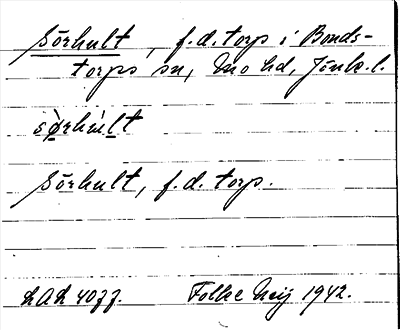 Sörhult, f.d. torp i Bonds-
torps sn, Mo hd, Jönk. l.
sø̀rhúlt
Sörhult, f.d. torp.
LAL 4077. Folke Heij 1942.